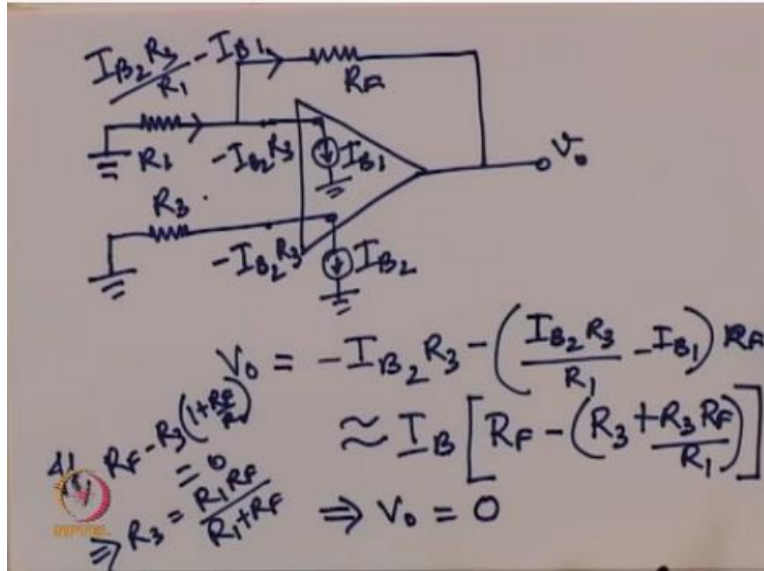 I_B2 R3/R1 - I_B1
R_F
R1
-I_B2 R3
I_B1
V_o
R3
-I_B2 R3
I_B2
V_o = -I_B2 R3 - (I_B2 R3/R1 - I_B1) R_F
≈ I_B [R_F - (R3 + R3 R_F/R1)]
If R_F - R3 (1 + R_F/R1)
= 0
⇒ R3 = R1 R_F/(R1 + R_F) ⇒ V_o = 0
NPTEL